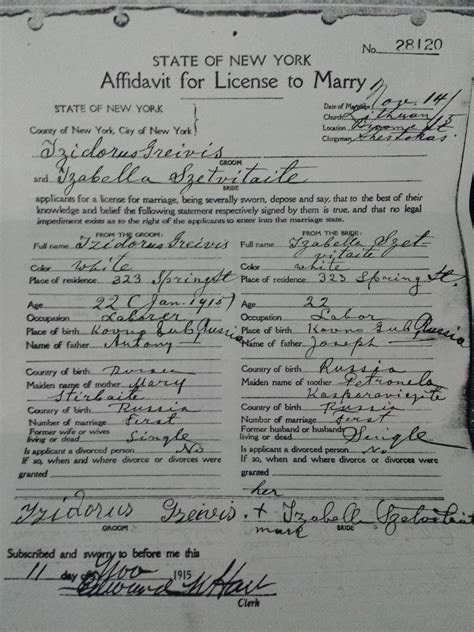 No. 28120
STATE OF NEW YORK
Affidavit for License to Marry
STATE OF NEW YORK
County of New York, City of New York
Date of Marriage Nov. 14/
Church Lithuan
Location Broome St
Clergyman
Izidorus Greivis
GROOM
and Izabella Szetvitaite
BRIDE
applicants for a license for marriage, being severally sworn, depose and say, that to the best of their
knowledge and belief the following statement respectively signed by them is true, and that no legal
impediment exists as to the right of the applicants to enter into the marriage state.
FROM THE GROOM: FROM THE BRIDE:
Full name Izidorus Greivis Full name Izabella Szet-
vitaite
Color white Color white
Place of residence 323 Spring St Place of residence 323 Spring St.
Age 22 (Jan. 1915) Age 22
Occupation Laborer Occupation Labor
Place of birth Kovno Gub Russia Place of birth Kovno Gub Russia
Name of father Antony Name of father Joseph
Country of birth Russia Country of birth Russia
Maiden name of mother Mary Maiden name of mother Petronela
Stirbaite Kasparaviezite
Country of birth Russia Country of birth Russia
Number of marriage First Number of marriage First
Former wife or wives Former husband or husbands
living or dead Single living or dead Single
Is applicant a divorced person No Is applicant a divorced person No
If so, when and where divorce or divorces were If so, when and where divorce or divorces were
granted granted
her
Izidorus Greivis. + Izabella
GROOM mark BRIDE
Subscribed and sworn to before me this
11 day of Nov 1915
Edward W Hart
Clerk